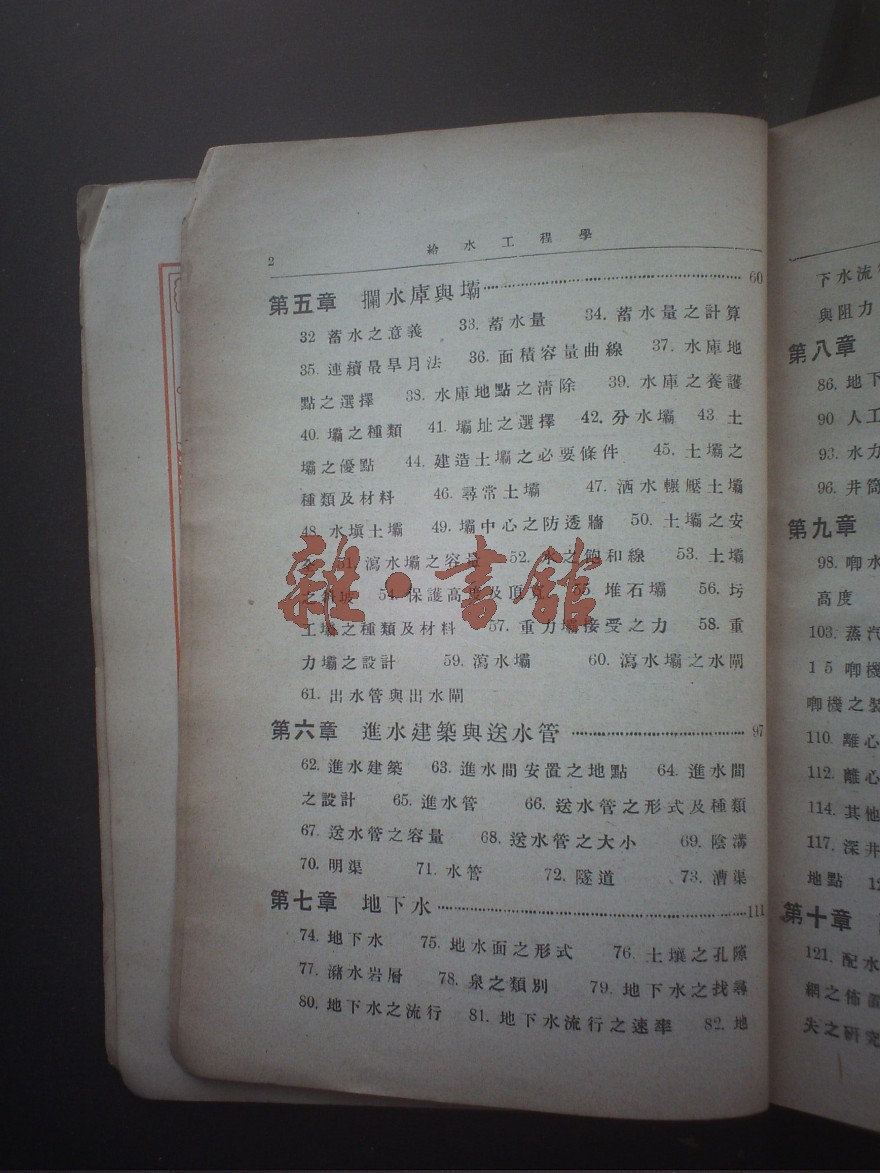 2 給水工程學
第五章 攔水庫與壩 60
32 蓄水之意義 33. 蓄水量 34. 蓄水量之計算
35. 連續最旱月法 36. 面積容量曲線 37. 水庫地
點之選擇 38. 水庫地點之淸除 39. 水庫之養護
40. 壩之種類 41. 壩址之選擇 42. 分水壩 43 土
壩之優點 44. 建造土壩之必要條件 45. 土壩之
種類及材料 46. 尋常土壩 47. 洒水輾壓土壩
48. 水塡土壩 49. 壩中心之防透牆 50. 土壩之安
51. 瀉水壩之容量 52. 水之飽和線 53. 土壩
之 54. 保護高度及頂寬 55. 堆石壩 56. 圬
工壩之種類及材料 57. 重力壩接受之力 58. 重
力壩之設計 59. 瀉水壩 60. 瀉水壩之水閘
61. 出水管與出水閘
第六章 進水建築與送水管 97
62. 進水建築 63. 進水間安置之地點 64. 進水間
之設計 65. 進水管 66. 送水管之形式及種類
67. 送水管之容量 68. 送水管之大小 69. 陰溝
70. 明渠 71. 水管 72. 隧道 73. 漕渠
第七章 地下水 111
74. 地下水 75. 地水面之形式 76. 土壤之孔隙
77. 瀦水岩層 78. 泉之類別 79. 地下水之找尋
80. 地下水之流行 81. 地下水流行之速率 82. 地
雜·書館
下水流
與阻力
第八章
86. 地下
90 人工
93. 水力
96. 井筒
第九章
98. 喞水
高度
103. 蒸汽
15 喞機
喞機之裝
110. 離心
112. 離心
114. 其他
117. 深井
地點
第十章
121. 配水
網之佈
失之研究